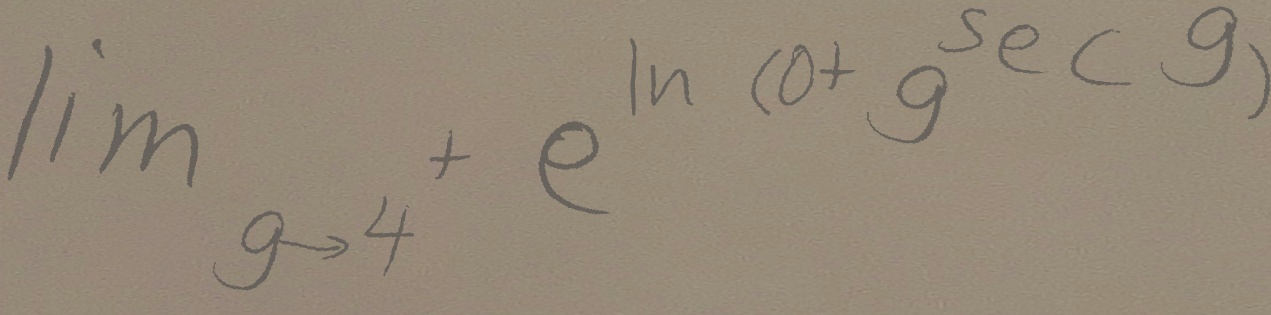 lim_{g→4^+} e^{ln (0+ g^{sec g})}